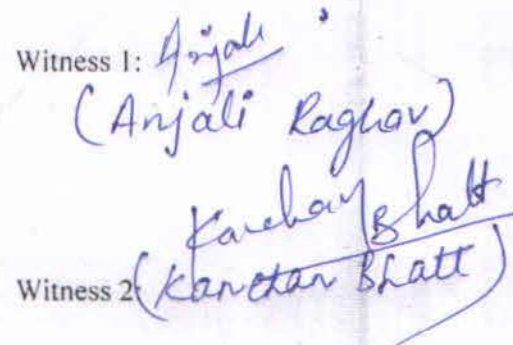 Witness 1: Anjali
(Anjali Raghav)
Kanchan Bhatt
Witness 2: (Kanchan Bhatt)